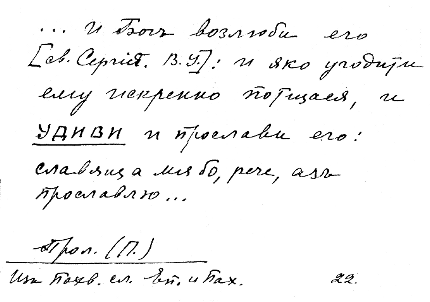 ... и Богъ возлюби его
[св. Сергія. В. У.]: и яко угодити
ему искренно потщася, и
УДИВИ и прослави его:
славяща мя бо, рече, азъ
прославлю...
Прол. (П.)
Изъ Похв. сл. Еп. и Пах. 22.